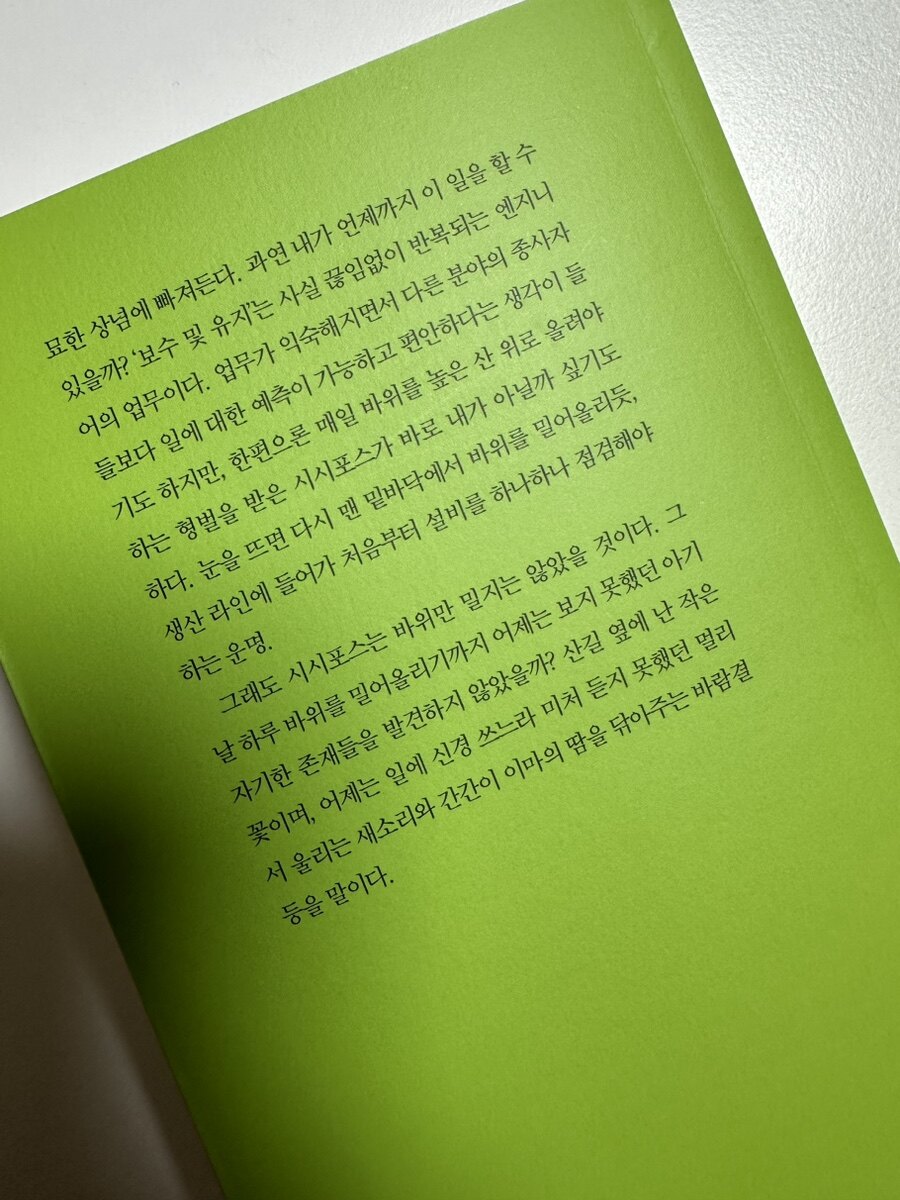 묘한 상념에 빠져든다. 과연 내가 언제까지 이 일을 할 수
있을까? ‘보수 및 유지’는 사실 끊임없이 반복되는 엔지니
어의 업무이다. 업무가 익숙해지면서 다른 분야의 종사자
들보다 일에 대한 예측이 가능하고 편안하다는 생각이 들
기도 하지만, 한편으론 매일 바위를 높은 산 위로 올려야
하는 형벌을 받은 시시포스가 바로 내가 아닐까 싶기도
하다. 눈을 뜨면 다시 맨 밑바닥에서 바위를 밀어올리듯,
생산 라인에 들어가 처음부터 설비를 하나하나 점검해야
하는 운명.
그래도 시시포스는 바위만 밀지는 않았을 것이다. 그
날 하루 바위를 밀어올리기까지 어제는 보지 못했던 아기
자기한 존재들을 발견하지 않았을까? 산길 옆에 난 작은
꽃이며, 어제는 일에 신경 쓰느라 미처 듣지 못했던 멀리
서 울리는 새소리와 간간이 이마의 땀을 닦아주는 바람결
등을 말이다.